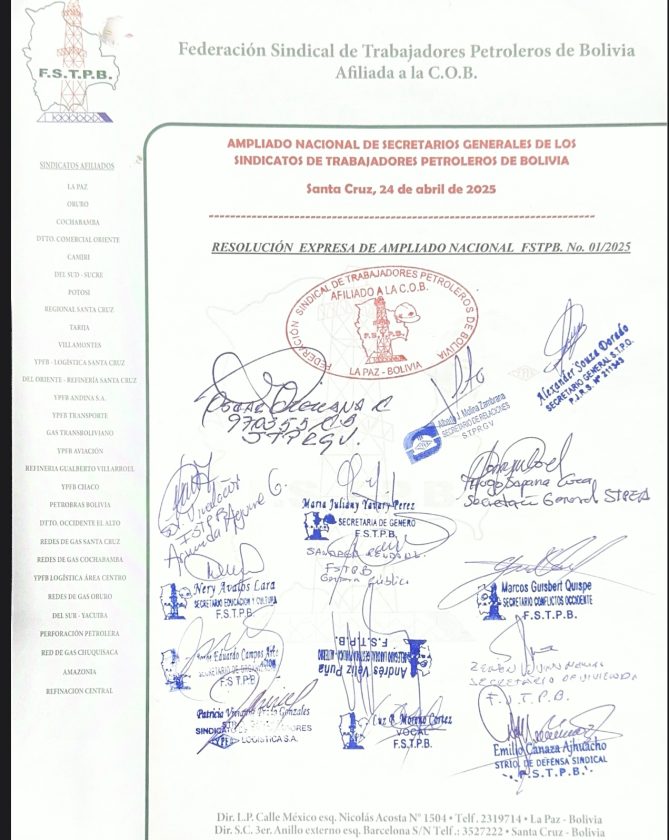 Federación Sindical de Trabajadores Petroleros de Bolivia
Afiliada a la C.O.B.
F.S.T.P.B.
AMPLIADO NACIONAL DE SECRETARIOS GENERALES DE LOS
SINDICATOS DE TRABAJADORES PETROLEROS DE BOLIVIA
Santa Cruz, 24 de abril de 2025
RESOLUCIÓN EXPRESA DE AMPLIADO NACIONAL FSTPB. No. 01/2025
SINDICATOS AFILIADOS
LA PAZ
ORURO
COCHABAMBA
DTTO. COMERCIAL ORIENTE
CAMIRI
DEL SUD - SUCRE
POTOSI
REGIONAL SANTA CRUZ
TARIJA
VILLAMONTES
YPFB - LOGÍSTICA SANTA CRUZ
DEL ORIENTE - REFINERÍA SANTA CRUZ
YPFB ANDINA S.A.
YPFB TRANSPORTE
GAS TRANSBOLIVIANO
YPFB AVIACIÓN
REFINERIA GUALBERTO VILLARROEL
YPFB CHACO
PETROBRAS BOLIVIA
DTTO. OCCIDENTE EL ALTO
REDES DE GAS SANTA CRUZ
REDES DE GAS COCHABAMBA
YPFB LOGÍSTICA ÁREA CENTRO
REDES DE GAS ORURO
DEL SUR - YACUIBA
PERFORACIÓN PETROLERA
RED DE GAS CHUQUISACA
AMAZONIA
REFINACION CENTRAL
FEDERACIÓN SINDICAL DE TRABAJADORES PETROLEROS DE BOLIVIA
AFILIADO A LA C.O.B.
LA PAZ - BOLIVIA
Alexander Souza Dorado
SECRETARIO GENERAL S.T.P.O.
P.J.R.S. Nº 211343
J. Molina Zambrana
SECRETARIO DE RELACIONES
S.T.P.R.G.V
S.T.P.R.G.V.
Hugo
Secretario General
María Juliany Yavary Perez
SECRETARIA DE GENERO
F.S.T.P.B.
FSTPB
Nery Avalos Lara
SECRETARIO EDUCACION Y CULTURA
F.S.T.P.B.
Marcos Guisbert Quispe
SECRETARIO CONFLICTOS OCCIDENTE
F.S.T.P.B.
Eduardo Campos
F.S.T.P.B.
Andrés Veliz Puña
F.S.T.P.B.
SECRETARIO DE VIVIENDA
F.S.T.P.B.
Patricia
Gonzales
LOGISTICA S.A.
Luz R. Moreno Cortez
VOCAL
F.S.T.P.B.
Emilio Canaza Ajhuacho
STRIO. DE DEFENSA SINDICAL
F.S.T.P.B.
Dir. L.P. Calle México esq. Nicolás Acosta Nº 1504 • Telf. 2319714 • La Paz - Bolivia
Dir. S.C. 3er. Anillo externo esq. Barcelona S/N Telf.: 3527222 • Santa Cruz - Bolivia